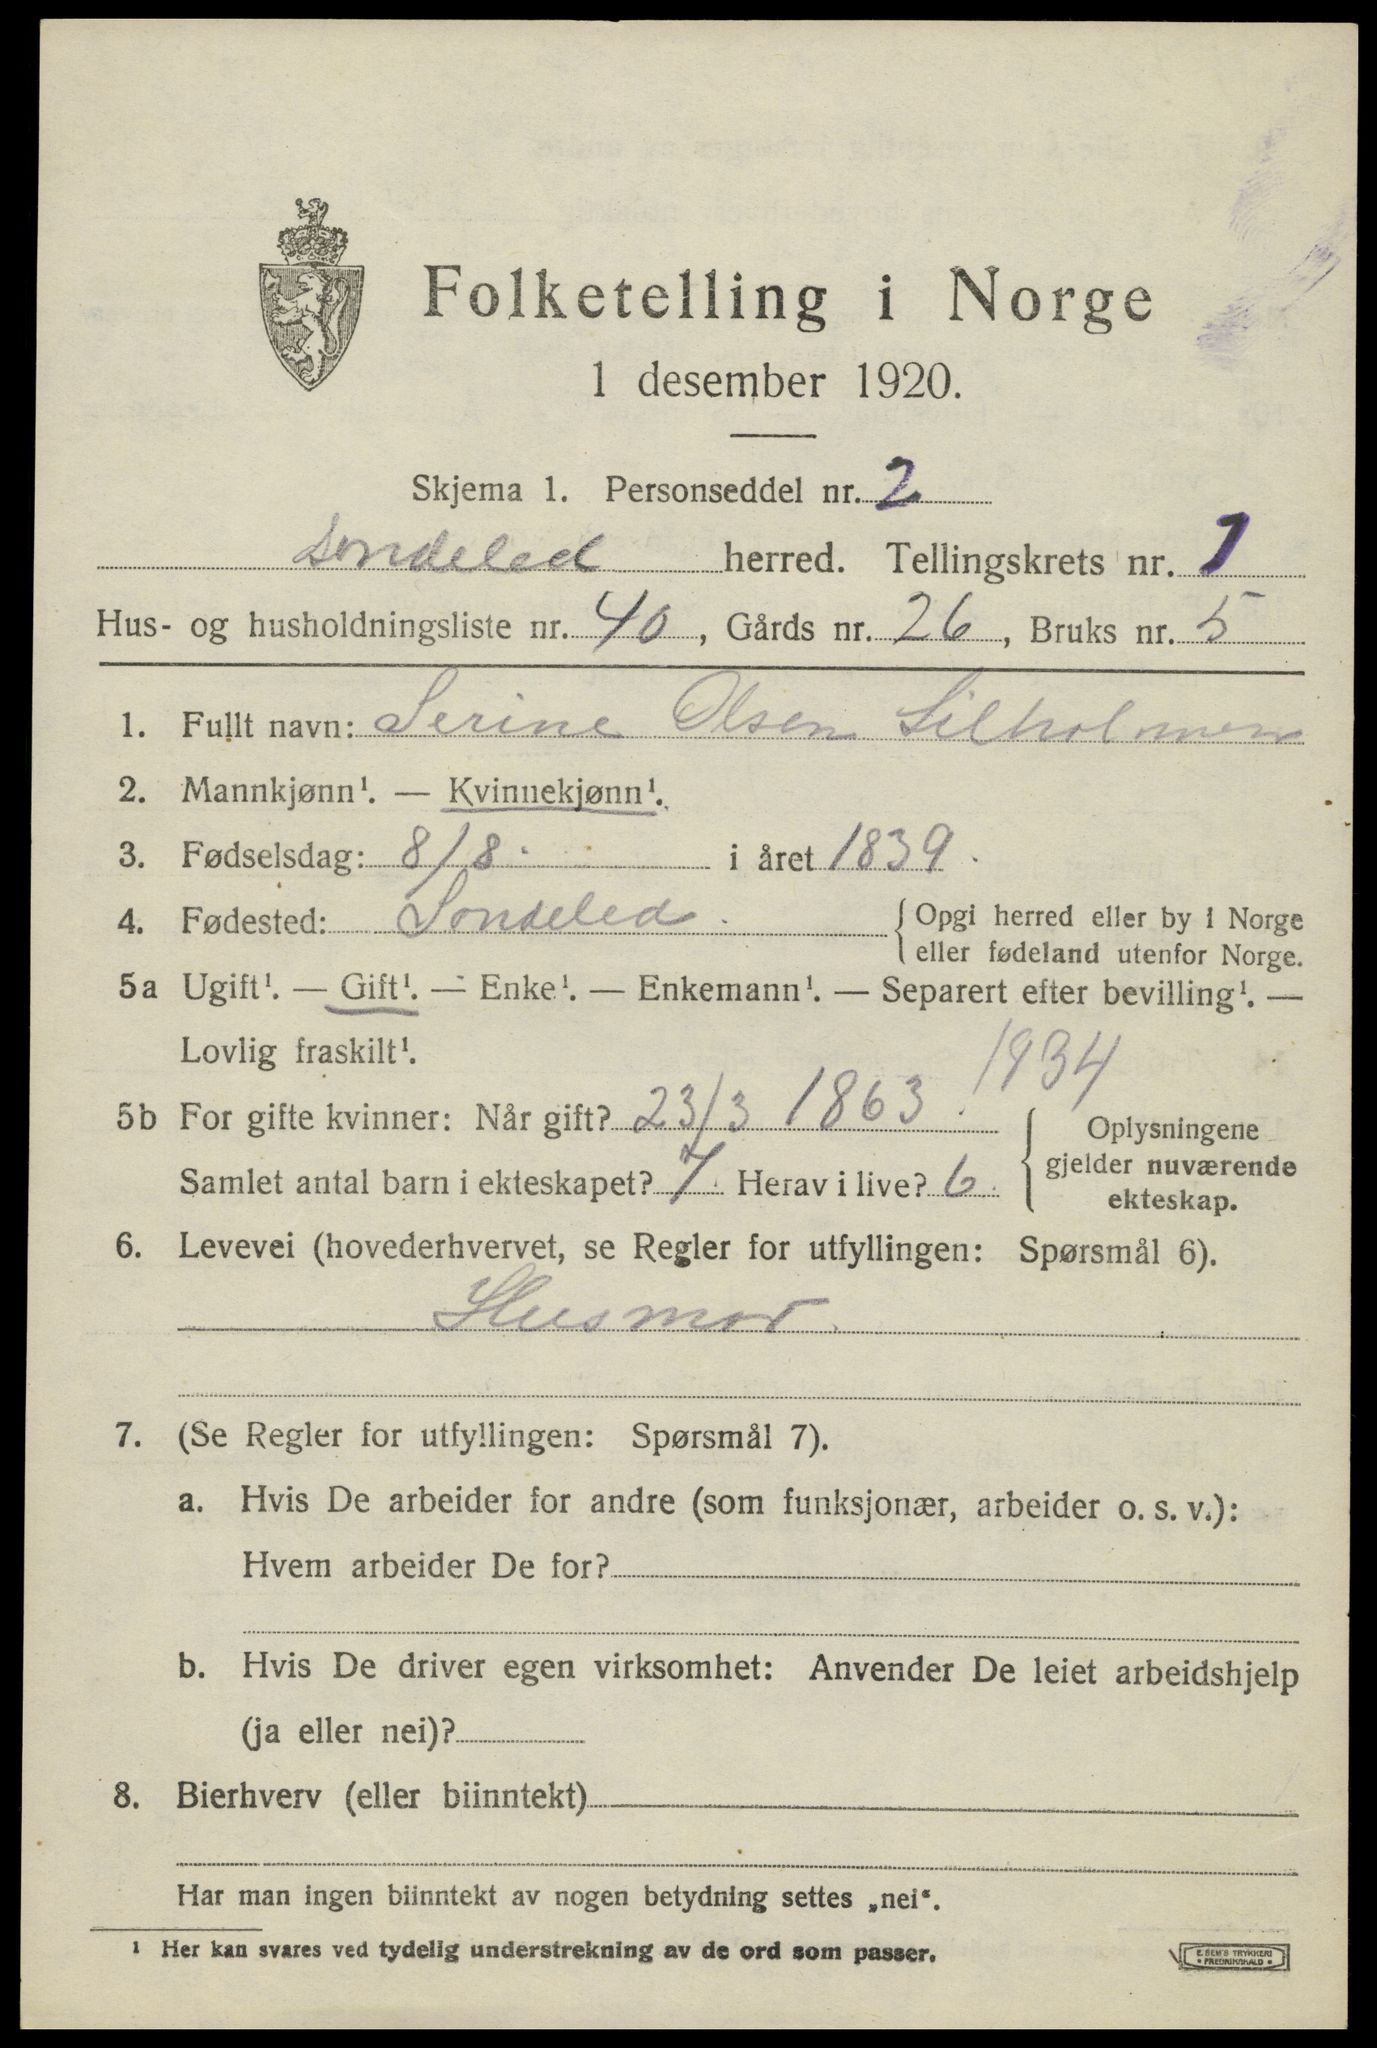 Folketelling i Norge
1 desember 1920.
Skjema 1. Personseddel nr. 2
Søndeled herred. Tellingskrets nr. 1
Hus- og husholdningsliste nr. 40, Gårds nr. 26, Bruks nr. 5
1. Fullt navn: Serine Olsen Lilholmen
2. Mannkjønn¹. — Kvinnekjønn¹.
3. Fødselsdag: 8/8. i året 1839.
4. Fødested: Søndeled. {Opgi herred eller by i Norge
eller fødeland utenfor Norge.
5a Ugift¹. — Gift¹. — Enke¹. — Enkemann¹. — Separert efter bevilling¹. —
Lovlig fraskilt¹.
1934
5b For gifte kvinner: Når gift? 23/3 1863.
Samlet antal barn i ekteskapet? 7. Herav i live? 6.
{Oplysningene
gjelder nuværende
ekteskap.
6. Levevei (hovederhvervet, se Regler for utfyllingen: Spørsmål 6).
Husmor.
7. (Se Regler for utfyllingen: Spørsmål 7).
a. Hvis De arbeider for andre (som funksjonær, arbeider o. s. v.):
Hvem arbeider De for?
b. Hvis De driver egen virksomhet: Anvender De leiet arbeidshjelp
(ja eller nei)?
8. Bierhverv (eller biinntekt)
Har man ingen biinntekt av nogen betydning settes „nei“.
¹ Her kan svares ved tydelig understrekning av de ord som passer.
E. SEM'S TRYKKERI
• FREDRIKSHALD •